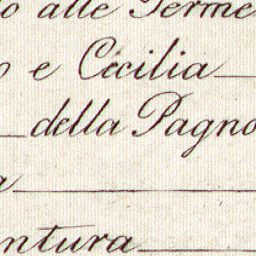 alle Terme
e Cecilia
della Pagno
a
ntura